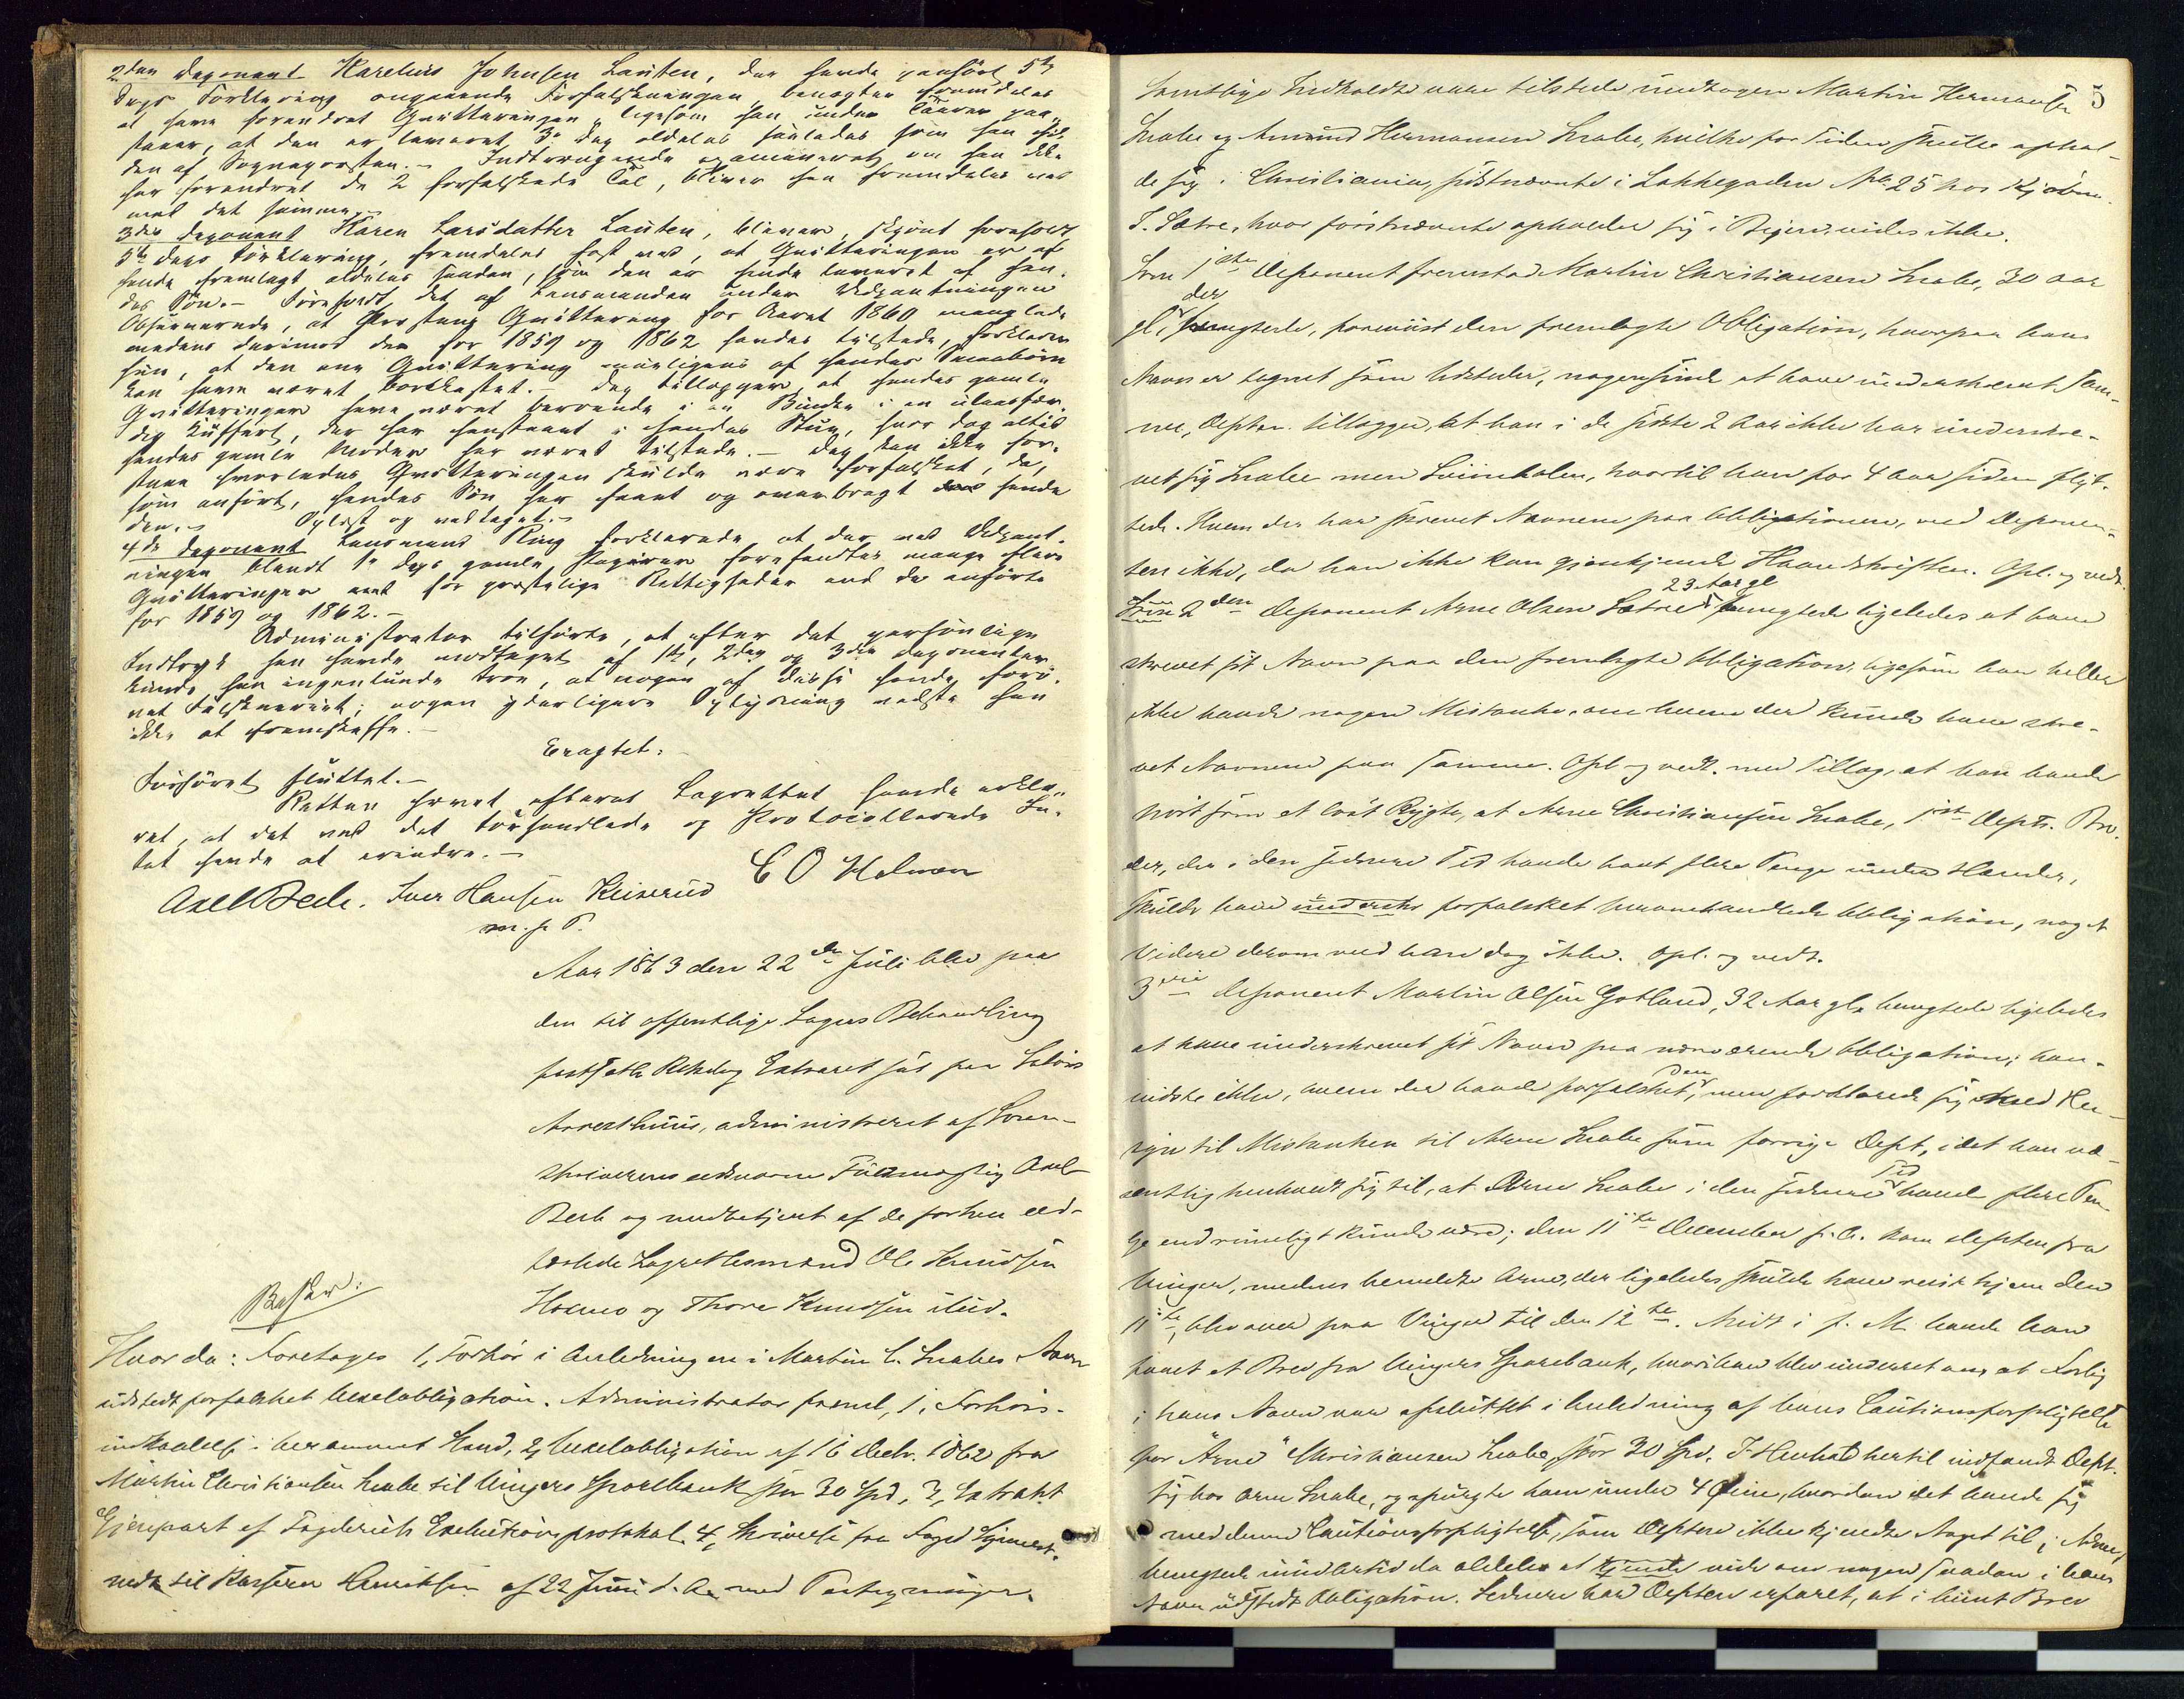 2den Deponent Karelius Johnsen Lauten, der havde paahørt 5te
Deps Forklaring angaaende Forfalskningen, benegter fremdeles
at have forandret Qvitteringen, ligesom han under Taarer paa-
staaer, at den er leveret 3die Dep aldeles saaledes som han fik
den af Sognepresten.- Indtrengende examineret, om han ikke
har forandret de 2 forfalskede Tal, bliver han fremdeles ved
med det samme.-
3die Deponent Karen Larsdatter Lauten, bliver, skjønt foreholdt
5te Deps Forklaring, fremdeles fast ved, at Qvitteringen er af
hende fremlagt aldeles saadan, som den er hende leveret af hen-
des Søn.- Foreholdt det af Lensmanden under Udpantningen
Observerede, at Prestens Qvittering for Aaret 1860 manglede
medens derimod den for 1859 og 1862 fandtes tilstede, forklarer
hun, at den ene Qvittering muligens af hendes Smaabørn
kan have været bortkastet.- Dep tillægger, at hendes gamle
Qvitteringer have været beroende i en Bunke i en ulaasfær-
dig Kuffert, der har henstaaet i hendes Stue, hvor dog altid
hendes gamle Moder har været tilstede.- Dep kan ikke for-
staae hvorledes Qvitteringen skulde være forfalsket, da,
som anført, hendes Søn har faaet og overbragt hende
den.- Oplæst og vedtaget.-
4de Deponent Lensmand Ring forklarede, at der ved Udpant-
ningen blandt 3die Deps gamle Papirer forefandtes mange flere
Qvitteringer end for prestelige Rettigheder end de anførte
for 1859 og 1862.-
Administrator tilførte, at efter det personlige
Indtryk han havde modtaget af 1ste, 2den og 3die Deponenter
kunde han ingenlunde troe, at nogen af disse havde forø-
vet Falskneriet; nogen yderligere Oplysning vidste han
ikke at fremskaffe.-
Eragtet:
Forhøret sluttet.-
Retten hævet efterat Lagrettet havde erklæ-
ret, at det ved det Forhandlede og Protocollerede In-
tet havde at erindre.-
Axel Beck. Iver Hansen Keiserud C O Holmen
m. f. P.
Aar 1863 den 22de Juli blev paa
den til offentlige Sagers Behandling
fastsatte Retsdag Extraret sat paa
Arresthuus, administreret af Soren-
skriverens edsvorne Fuldmægtig Axel
Beck og medbetjent af de forhen eed-
fæstede Lagrettesmænd Ole Knudsen
Holmo og Thore Knudsen
Besk:
Hvor da: Foretages 1, Forhør i Anledning en i Martin C. Snabes Navn
udstedt forfalsket Vexelobligation. Administrator freml. 1, Forhørs-
indkaldelse i beramment Stand, 2, Vexelobligation af 16 Decbr. 1862 fra
Martin Christiansen Snabe til Vingers Sparebank stor 30 Spd, 3, Extrakt
Gjenpart af Fogderiets Executionsprotokol. 4, Skrivelse fra Foged
til Kasserer Henriksen af 22 Juni d. A. med Paategninger.
5
Samtlige Indkaldte vare tilstede undtagen Martin Hermansen
Snabe og Amund Hermansen Snabe, hvilke for Tiden skulle ophol-
de sig i Christiania, sidstnævnte i Lakkegaden No 25 hos
T. Sætre, hvor førstnævnte opholder sig i Byen, vides ikke.
Som 1ste Deponent fremstod Martin Christiansen Snabe, 30 Aar
gl, der benegtede, foreviist den fremlagte Obligation, hvorpaa hans
Navn er tegnet som Udsteder, nogensinde at have underskrevet Sam-
me. Depten. tillægger, at han i de sidste 2 Aar ikke har underskre-
vet sig Snabe men Svimholen, hvortil han for 4 Aar siden flyt-
tede. Hvem der har skrevet Navnene paa Obligationen, ved Deponen-
ten ikke, da han ikke kan gjenkjende Haandskriften. Opl. og vedt.
Som 2den Deponent Arne Olsen Sætre 23 Aar gl benegtede ligeledes at have
skrevet sit Navn paa den fremlagte Obligation, ligesom han heller
ikke havde nogen Mistanke, om hvem der kunde have skre-
vet Navnene paa Samme. Opl. og vedt. med Tillæg, at han havde
hørt som et løst Rygte, at Arne Christiansen Snabe, 1ste Depts. Bro-
der, der i den senere Tid havde havt flere Penge under Hænder,
skulde have underskr forfalsket heromhandlede Obligation, noget
Videre derom veed han dog ikke. Opl. og vedt.
3die Deponent Martin Olsen Gotland, 32 Aar gl, benegtede ligeledes
at have underskrevet sit Navn paa nærværende Obligation; han
vidste ikke, hvem der havde forfalsket den, men forklarede sig med Hen-
syn til Mistanken til Arne Snabe som forrige Dept, idet han væ-
sentlig henholdt sig til, at Arne Snabe i den senere Tid havde flere Pen-
ge end rimeligt kunde være; den 11te December f. A. kom Depten fra
Vinger, medens bemeldte Arne, der ligeledes skulde have reist hjem den
11te, blev over paa Vinger til den 12te. Midt i f. M. havde han
faaet et Brev fra Vingers Sparebank, hvori han blev underrettet om, at Forlig
i hans Navn var afsluttet i Anledning af hans Cautionsforpligtelse
for "Arne" Christiansen Snabe, stor 30 Spd. I Henhold hertil indfandt Dept.
sig hos Arne Snabe, og spurgte ham under 4 Øine, hvordan det havde sig
med denne Cautionsforpligtelse, som Depten ikke kjendte Noget til; Arne
benegtede imidlertid da aldeles at kjende vide om nogen saadan i hans
Navn udstedt Obligation. Senere har Depten erfaret, at i hiint Brev